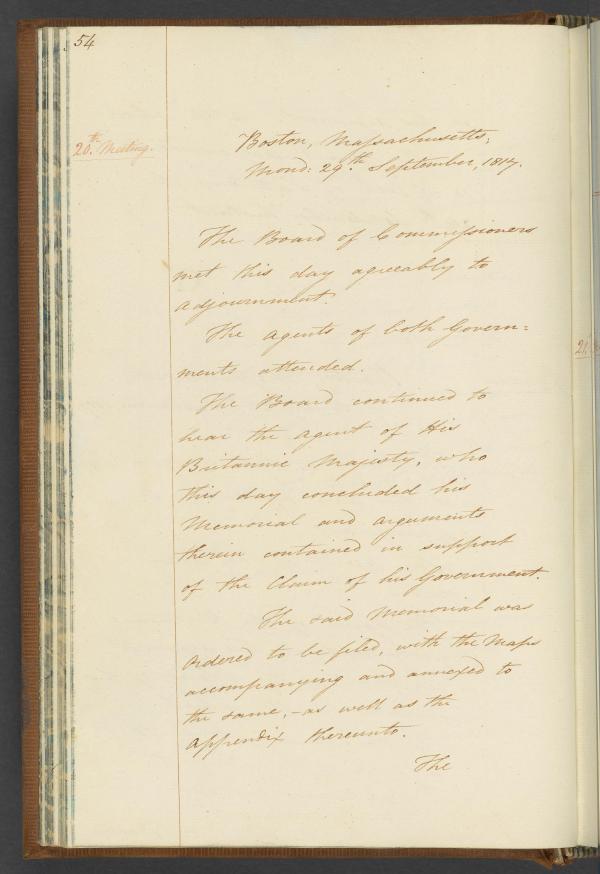 54
20.th Meeting.
Boston, Massachusetts,
Mond: 29.th September, 1817.
The Board of Commissioners
met this day agreeably to
adjournment.
The agents of both Govern=
ments attended.
The Board continued to
hear the agent of His
Britannic Majesty, who
this day concluded his
Memorial and arguments
therein contained in support
of the Claim of his Government.
The said Memorial was
ordered to be filed, with the Maps
accompanying and annexed to
the same, - as well as the
appendix thereunto.
The
21.